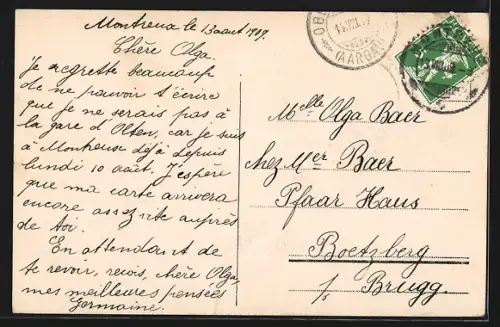 Montreux le 13 aout 1909.
Chère Olga.
Je regrette beaucoup
de ne pouvoir t'écrire
que je ne serais pas à
la gare d'Olten, car je suis
à Montreux déjà depuis
lundi 10 août. J'espère
que ma carte arrivera
encore assez vite auprès
de toi.
En attendant de
te revoir, reçois, chère Olga,
mes meilleures pensées
Germaine.
(AARGAU)
Melle Olga Baer
chez Mer Baer
Pfaar Haus
Boetzberg
p/s Brugg.